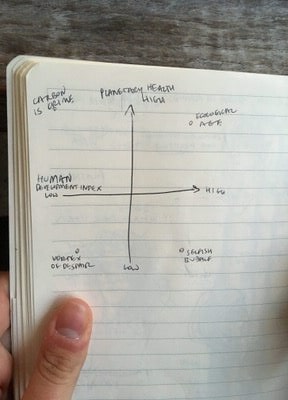 CARBON
IS DIVINE
PLANETARY HEALTH
HIGH
ECOLOGICAL
AGE
HUMAN
DEVELOPMENT INDEX
LOW
HIGH
VORTEX
OF DESPAIR
LOW
SELFISH
BUBBLE